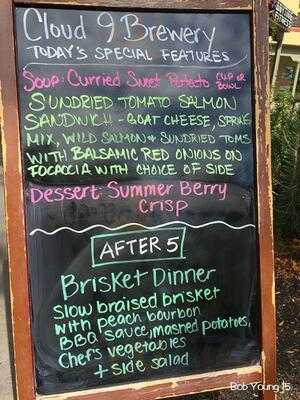 Cloud 9 Brewery
TODAY'S SPECIAL FEATURES
Soup: Curried Sweet Potato CUP or BOWL
SUNDRIED TOMATO SALMON
SANDWICH - GOAT CHEESE, SPRING
MIX, WILD SALMON & SUNDRIED TOMS
WITH BALSAMIC RED ONIONS ON
FOCACCIA WITH CHOICE OF SIDE
Dessert: Summer Berry
Crisp
AFTER 5
Brisket Dinner
Slow braised brisket
with peach bourbon
BBQ sauce, mashed potatoes,
Chef's vegetables
+ side salad
Bob Young 15